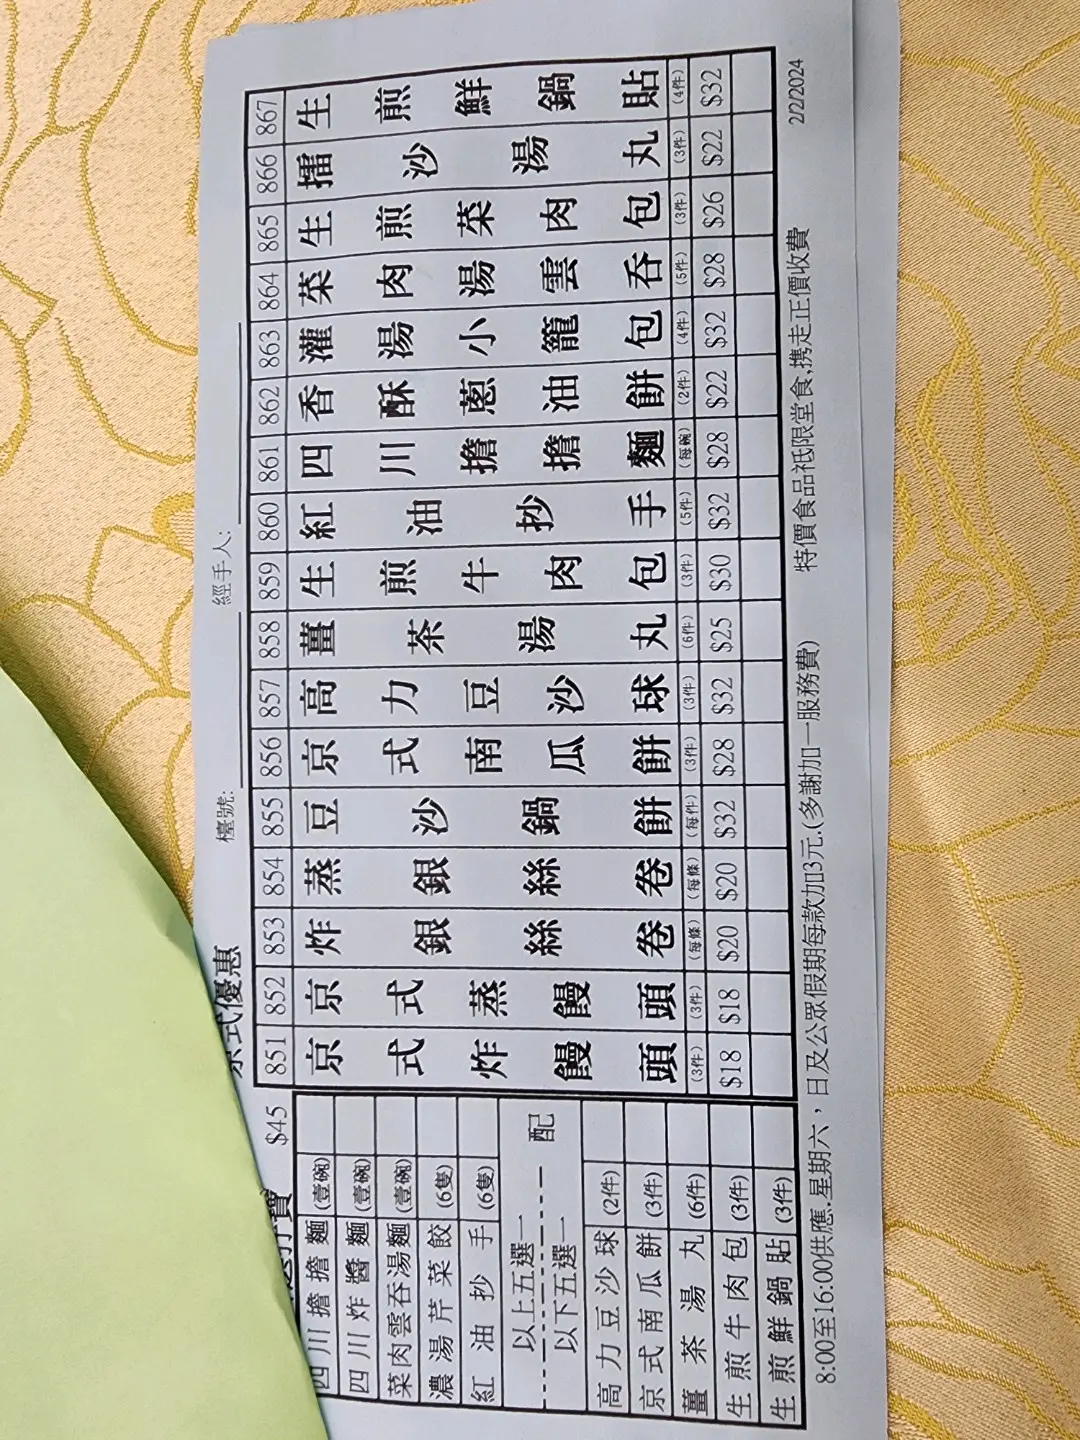 檯號:
經手人:
$45
四川擔擔麵 (壹碗)
四川炸醬麵 (壹碗)
菜肉雲吞湯麵 (壹碗)
濃湯芹菜餃 (6隻)
紅油抄手 (6隻)
以上五選一
配
以下五選一
高力豆沙球 (2件)
京式南瓜餅 (3件)
薑茶湯丸 (6件)
生煎牛肉包 (3件)
生煎鮮鍋貼 (3件)
式優惠
851 京式炸饅頭 (3件) $18
852 京式蒸饅頭 (3件) $18
853 炸銀絲卷 (每條) $20
854 蒸銀絲卷 (每條) $20
855 豆沙鍋餅 (每件) $32
856 京式南瓜餅 (3件) $28
857 高力豆沙球 (3件) $32
858 薑茶湯丸 (6件) $25
859 生煎牛肉包 (3件) $30
860 紅油抄手 (5件) $32
861 四川擔擔麵 (每碗) $28
862 香酥蔥油餅 (2件) $22
863 灌湯小籠包 (4件) $32
864 菜肉湯雲呑 (5件) $28
865 生煎菜肉包 (3件) $26
866 擂沙湯丸 (3件) $22
867 生煎鮮鍋貼 (4件) $32
8:00至16:00供應.星期六，日及公眾假期每款加3元.(多謝加一服務費)
特價食品祗限堂食,携走正價收費
2/2/2024